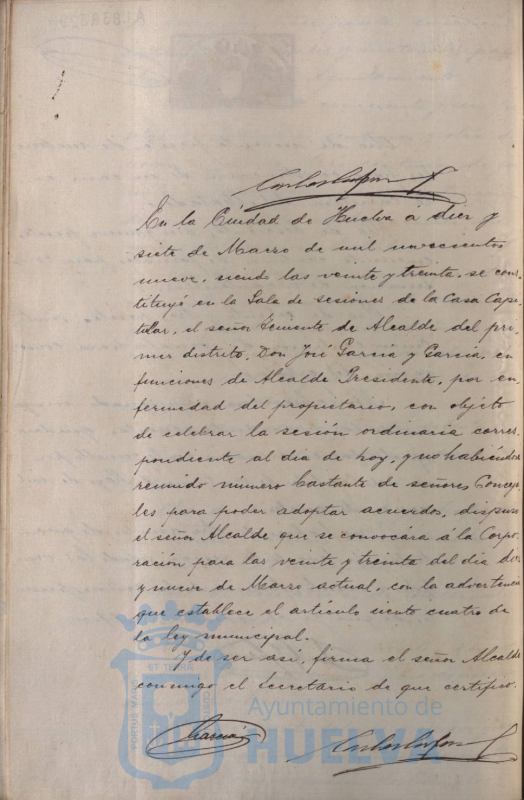 En la Ciudad de Huelva á diez y
siete de Marzo de mil novecientos
nueve, siendo las veinte y treinta, se cons-
tituyó en la Sala de sesiones de la Casa Capi-
tular, el señor Teniente de Alcalde del pri-
mer distrito, Don José García y García, en
funciones de Alcalde Presidente, por en-
fermedad del propietario, con objeto
de celebrar la sesión ordinaria corres-
pondiente al dia de hoy, y no habiéndose
reunido número bastante de señores Conceja-
les para poder adoptar acuerdos, dispuso
el señor Alcalde que se convocára á la Corpo-
ración para las veinte y treinta del dia diez
y nueve de Marzo actual, con la advertencia
que establece el artículo ciento cuatro de
la ley municipal.
Y de ser así, firma el señor Alcalde
conmigo el Secretario de que certifico.
García
ET TERRA
PORTUS MARIS
Ayuntamiento de
HUELVA